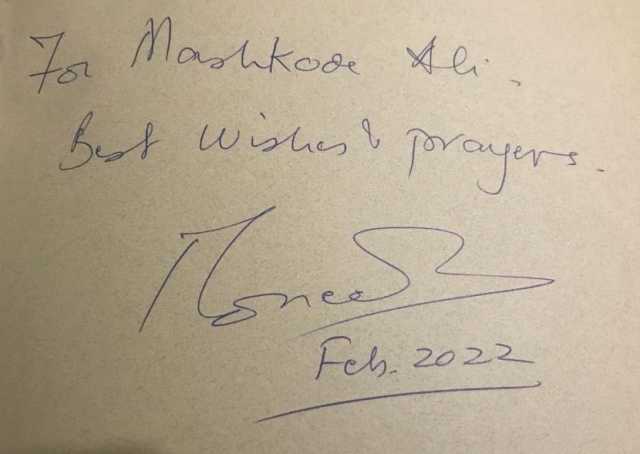 For Mashkode Ali.
Best Wishes & prayers.
Feb. 2022